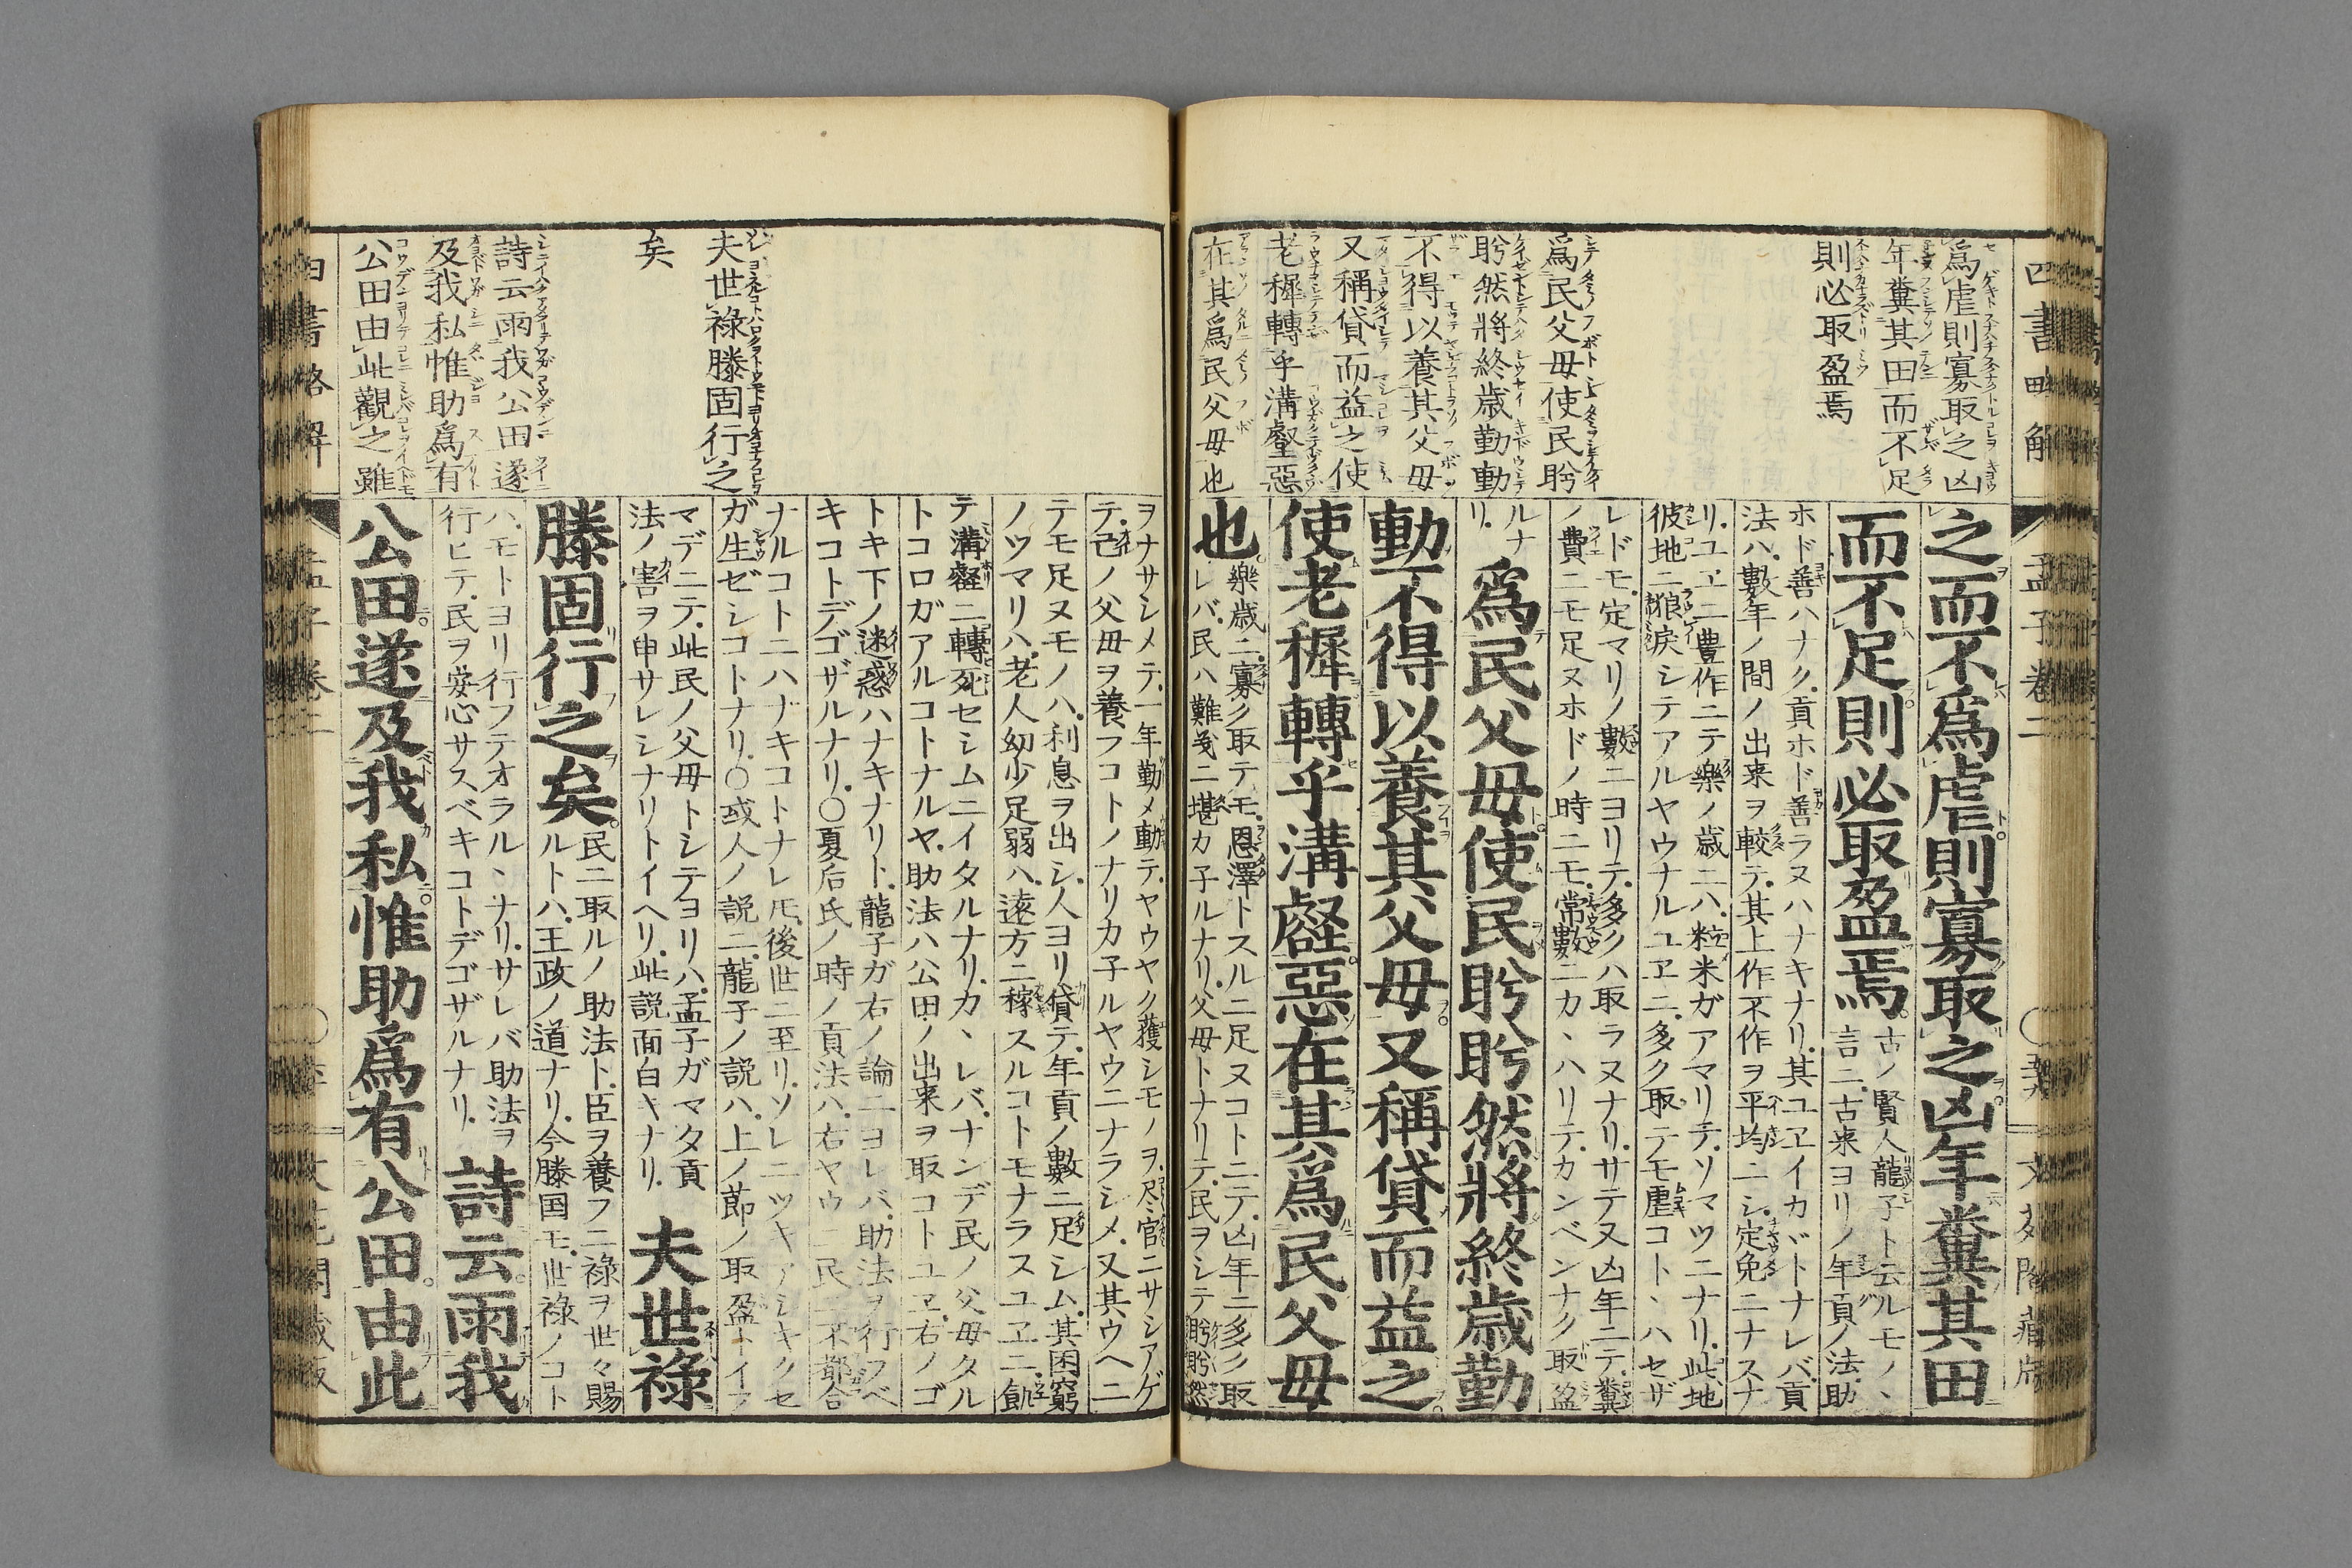 四書略解
爲虐則寡取之凶
年糞其田而不足
則必取盈焉
爲民父母使民盻
盻然將終歳勤動
不得以養其父母
又稱貸而益之使
老穉轉乎溝壑惡
在其爲民父母也
孟子卷二
之而不爲虐則寡取之凶年糞其田
而不足則必取盈焉。
古ノ賢人龍子ト云ルモノヽ
言ニ古来ヨリノ年貢ノ法助
ホド善ハナク貢ホド善ラヌハナキナリ其ユヱイカバトナレバ貢
法ハ數年ノ間ノ出来ヲ較テ其上作不作ヲ平均ニシ定免ニナスナ
リユヱニ豊作ニテ樂ノ歳ニハ粒米ガアマリテソマツニナリ此地
彼地ニ狼戾シテアルヤウナルユヱニ多ク取テモ虐コトヽハセザ
レドモ定マリノ數ニヨリテ多クハ取ラヌナリサテ又凶年ニテ糞
ノ費ニモ足ヌホドノ時ニモ常數ニカヽハリテカンベンナク取盈
ルナ
リ
爲民父母使民盻盻然將終歳勤
動不得以養其父母又稱貸而益之
使老穉轉乎溝壑惡在其爲民父母
也。
樂歳ニ寡ク取テモ恩澤トスルニ足ヌコトニテ凶年ニ多ク取
レバ民ハ難義ニ堪カ子ルナリ父母トナリテ民ヲシテ盻盻然
夫世祿滕固行之
矣
詩云雨我公田遂
及我私惟助爲有
公田由此觀之雖
四書略解
ヲナサシメテ一年勤メ動テヤウヤク獲シモノヲ尽官ニサシアゲ
テ己ノ父母ヲ養フコトノナリカ子ルヤウニナラシメ又其ウヘニ
テモ足ヌモノハ利息ヲ出シ人ヨリ貸テ年貢ノ數ニ足シム其困窮
ノツマリハ老人幼少足弱ハ遠方ニ稼スルコトモナラスユヱニ飢
テ溝壑ニ轉死セシムニイタルナリカヽレバナンデ民ノ父母タル
トコロガアルコトナルヤ助法ハ公田ノ出来ヲ取コトユヱ右ノゴ
トキ下ノ迷惑ハナキナリト龍子ガ右ノ論ニヨレバ助法ヲ行フベ
キコトデゴザルナリ〇夏后氏ノ時ノ貢法ハ右ヤウニ民ニ不都合
ナルコトニハナキコトナレ𪜈後世ニ至リソレニツキアシキクセ
ガ生ゼシコトナリ〇或人ノ説ニ龍子ノ説ハ上ノ節ノ取盈トイフ
マデニテ此民ノ父母トシテヨリハ孟子ガマタ貢
法ノ害ヲ申サレシナリトイヘリ此説面白キナリ
夫世祿
滕固行之矣。
民ニ取ルノ助法ト臣ヲ養フニ祿ヲ世々賜
ルトハ王政ノ道ナリ今滕国モ世祿ノコト
ハモトヨリ行フテオラルヽナリサレバ助法ヲ
行ヒテ民ヲ安心サスベキコトデゴザルナリ
詩云雨我
公田遂及我私惟助爲有公田由此
孟子卷二
文苑閣蔵版